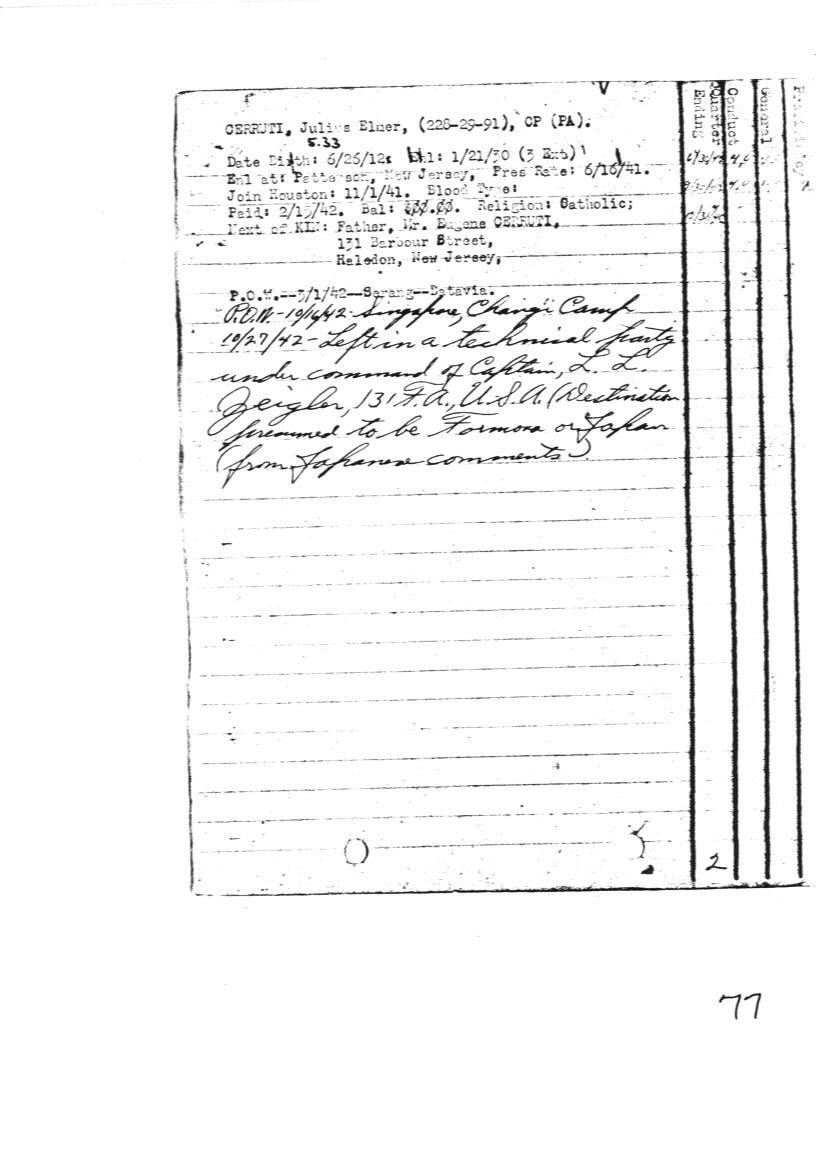 CERRUTI, Julius Elmer, (228-29-91), CP (PA).
5.33
Date Birth: 6/26/12; Enl: 1/21/30 (3 Ext)
Enl at: Patterson, New Jersey, Pres Rate: 6/16/41.
Join Houston: 11/1/41. Blood Type:
Paid: 2/15/42. Bal: Religion: Catholic;
Next of KIN: Father, Mr. Eugene CERRUTI,
131 Barbour Street,
Haledon, New Jersey,
P.O.W.--3/1/42--Serang--Batavia.
P.O.W.-10/16/42-Singapore, Changi Camp
10/27/42-Left in a technical party
under command of Captain, L. L.
Zeigler, 131 F.A., U.S.A. (Destination
presumed to be Formosa or Japan
(from Japanese comments)
Quarter
Ending
Conduct
General
2
77